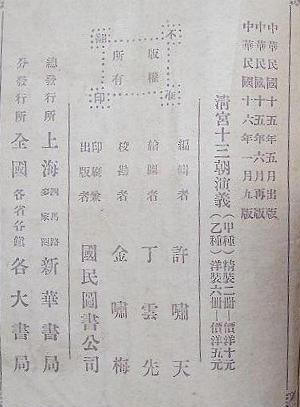 中華民國十五年五月出版
中華民國十五年六月再版
中華民國十六年一月九版
清宮十三朝演義
(甲種)精裝二冊—價洋十元
(乙種)洋裝六冊—價洋五元
不准翻印
版權所有
編輯者 許嘯天
繪圖者 丁雲先
校勘者 金嘯梅
印刷兼出版者 國民圖書公司
總發行所 上海四馬路 新華書局
分發行所 全國各省各鎮 各大書局